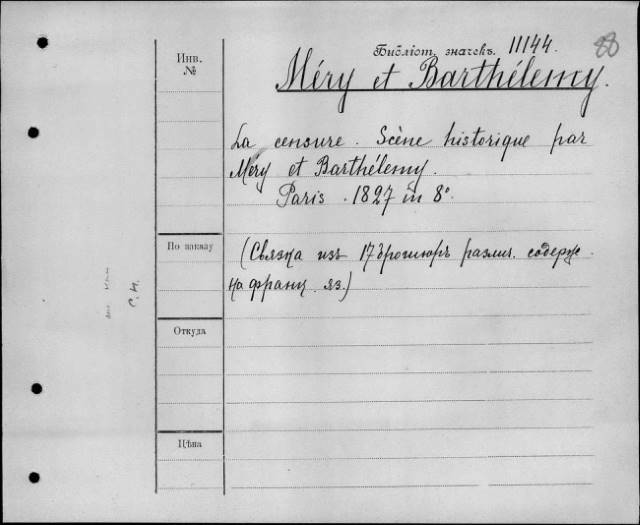 Библіот. значекъ. 11144. 88
Инв. №
Méry et Barthélemy.
La censure. Scène historique par
Méry et Barthélemy.
Paris. 1827 in 8°
По заказу
(Связка изъ 17 брошюръ различ. содерж.
на франц. яз.)
С. Н.
Откуда
Цѣна